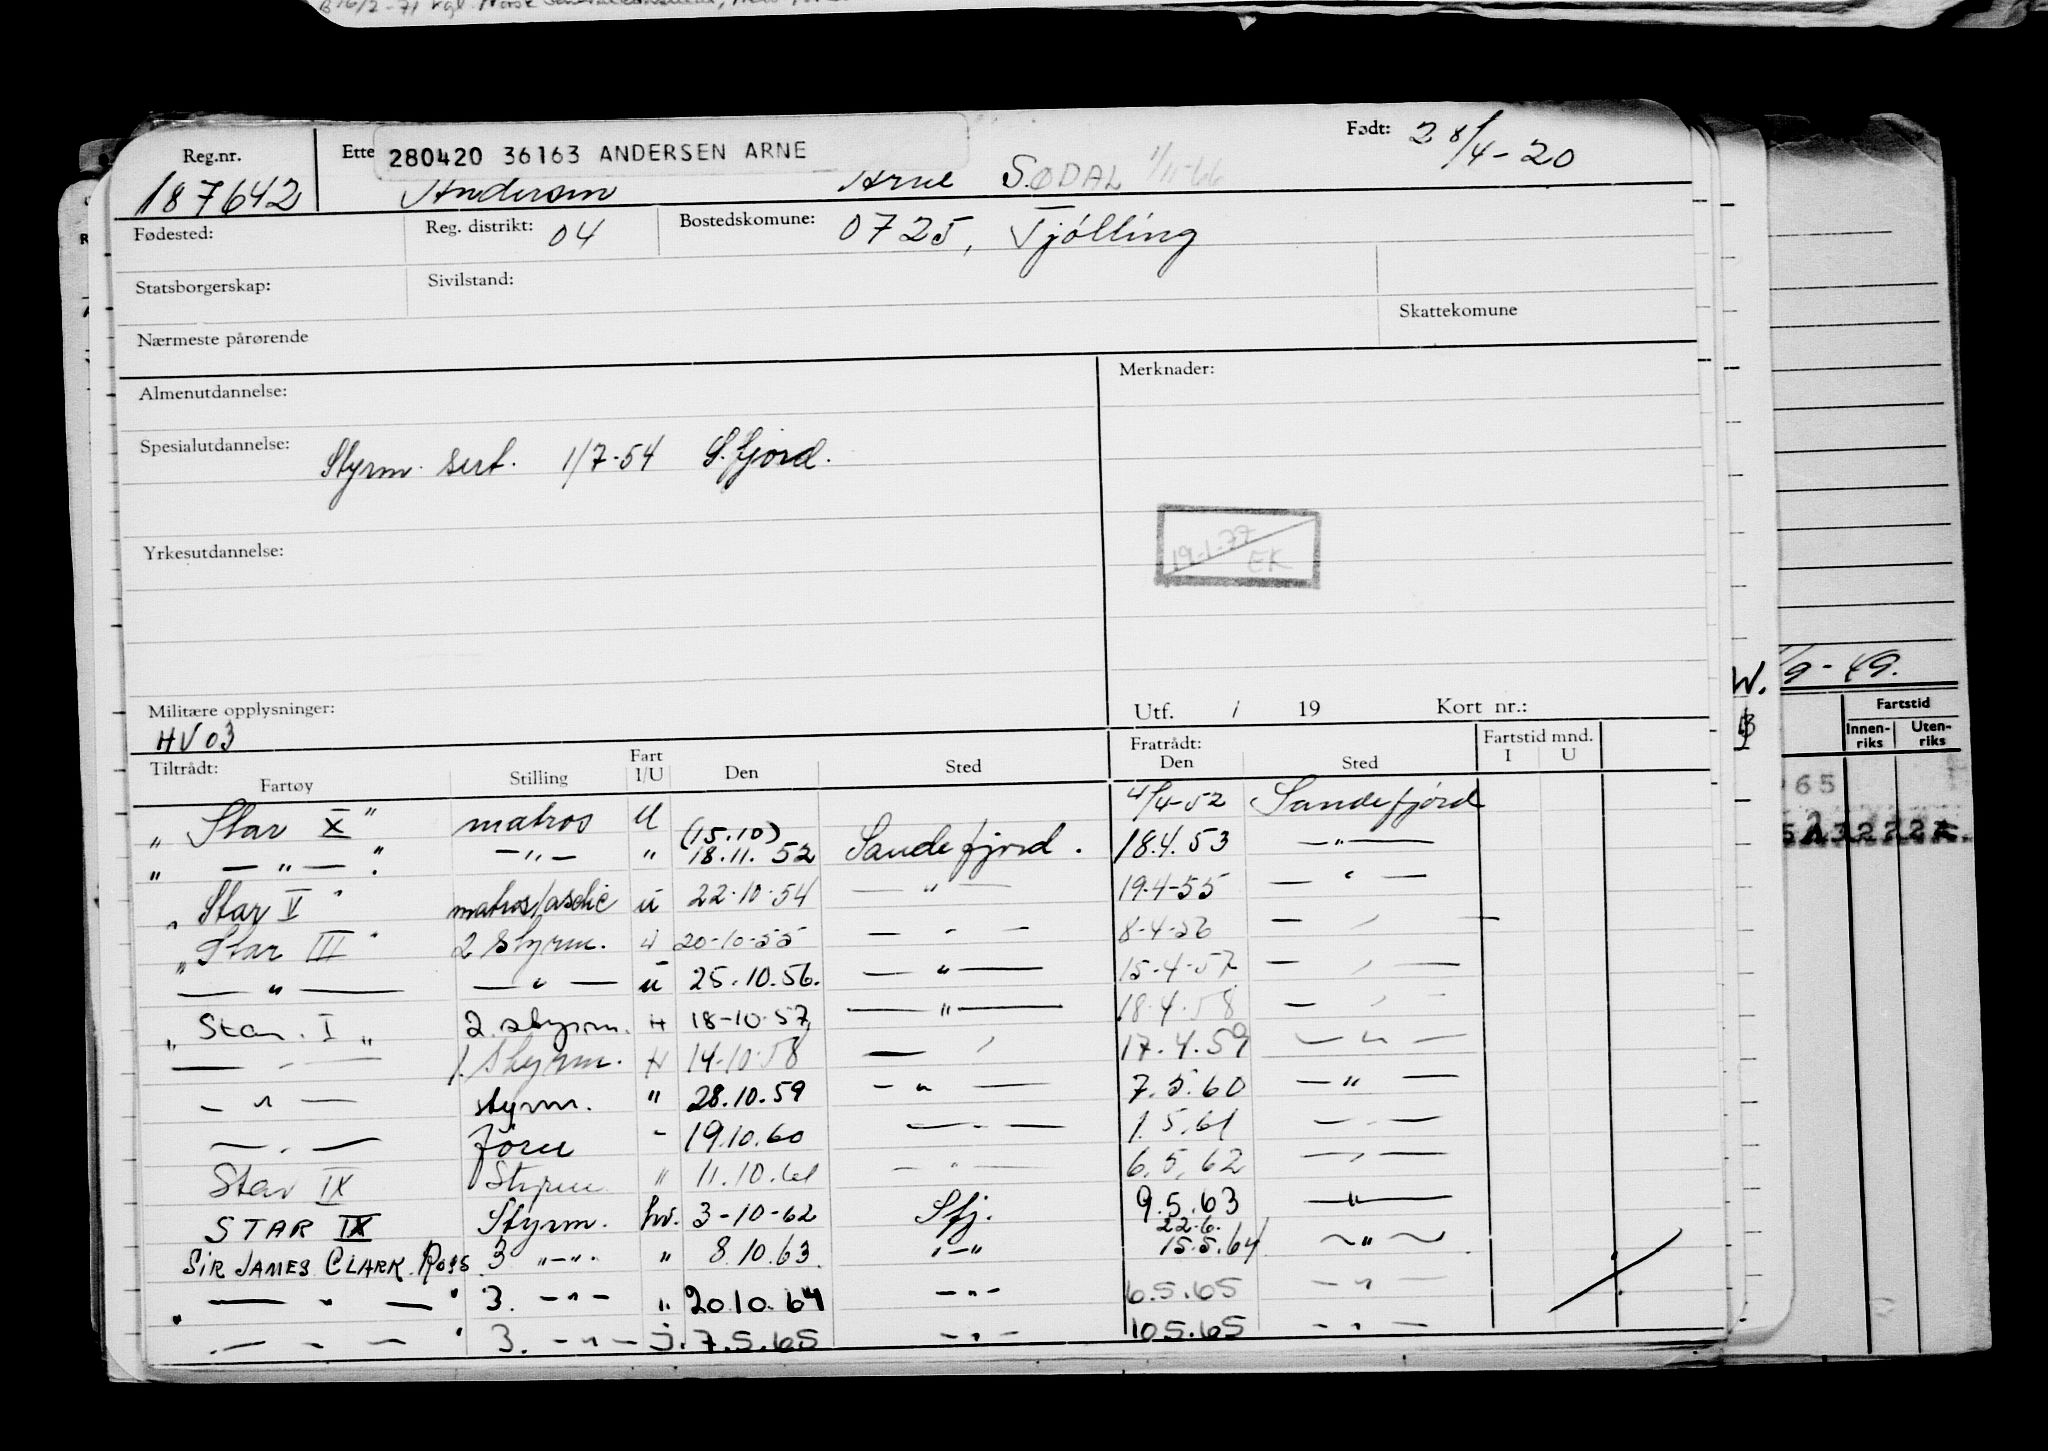 Reg.nr. Ette 280420 36163 ANDERSEN ARNE Født: 28/4-20
187642 Andersen Arne SØDAL 1/11-66
Fødested: Reg. distrikt: 04 Bostedskomune: 0725, Tjølling
Statsborgerskap: Sivilstand:
Nærmeste pårørende Skattekomune
Almenutdannelse: Merknader:
Spesialutdannelse: Styrm. sert. 1/7-54 S.fjord.
19-1-77 EK
Yrkesutdannelse:
Militære opplysninger: Utf. / 19 Kort nr.:
HV03
Tiltrådt: Fartøy Stilling Fart I/U Den Sted Fratrådt: Den Sted Fartstid mnd. I U
„ Star X " matros U 4/4-52 Sandefjord
„ — „ — " — „ — " (15.10) 18.11.52 Sandefjord. 18.4.53 — " —
„ Star V " matros/asdic u 22-10-54 — " — 19-4-55 — " —
„ Star III " 2 styrm. u 20-10-55 — " — 8-4-56 — " —
— " — — " — u 25.10.56. — " — 15-4-57 — " —
„ Star. I „ 2. styrm. H 18-10-57 — " — 18.4.58 — " —
— " — 1. Styrm. H 14-10-58 — " — 17.4.59 — " —
— " — styrm. " 28.10.59 — " — 7.5.60 — " —
— " — " 19.10.60 — " — 1.5.61 — " —
Star IX Styrm " 11.10.61 — " — 6.5.62 — " —
STAR IX Styrm. hv. 3-10-62 Sfj. 9.5.63 — " —
SIR JAMES CLARK ROSS 3 " — " " 8.10.63. " — " 22.6. 15.5.64 — " —
„ — " — " 3. — " — " 20.10.64 — " — 6.5.65 — " —
— " — " 3. — " — 7.5.65 — " — 10.5.65 — " —
W.
9-49.
Fartstid
Innen-riks Uten-riks
65